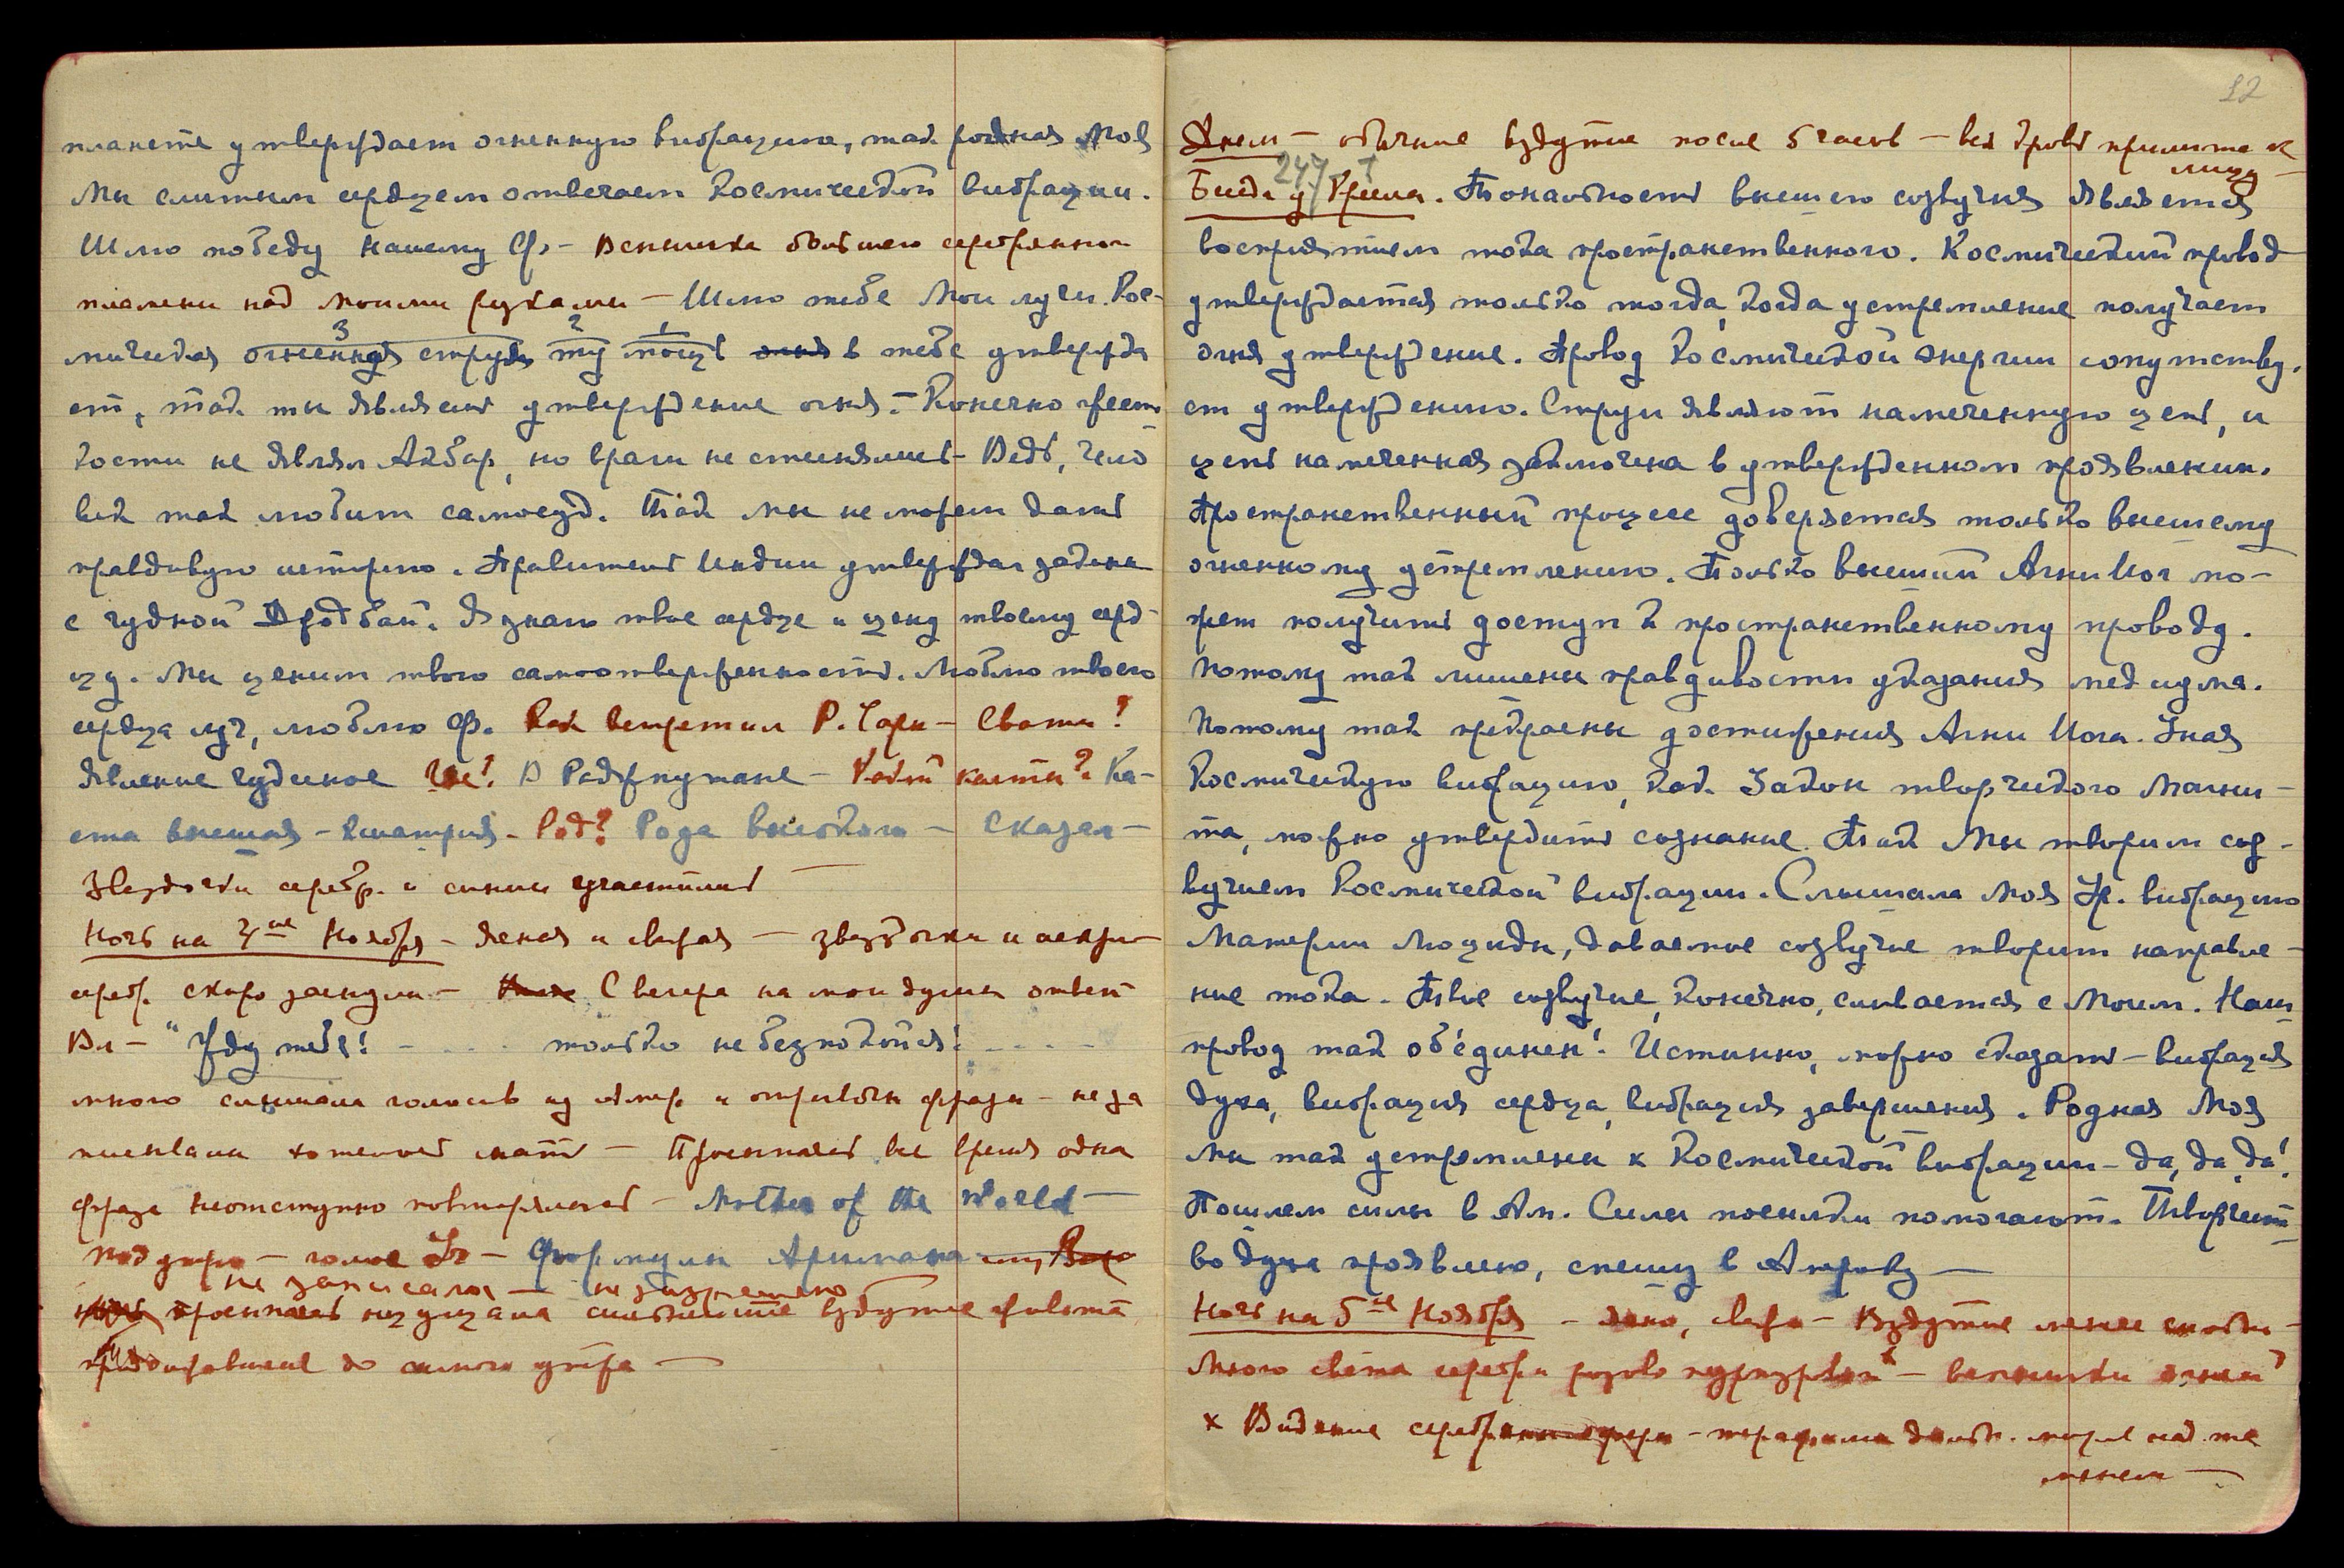 планете утверждает огненную вибрацию, так родная Моя
Мы слитным сердцем отвечаем Космической вибрации.
Шлю победу нашему Ф. – вспышка большого серебряного
пламени над моими руками – Шлю тебе Мои лучи. Кос-
3 2 1
мическая огненная струя ту мощь огня в тебе утвержда
ет, так ты являешь утверждение огня. – Конечно жест-
кости не являл Акбар, но враги не стеснялись – Ведь, чело
век так любит самоедз. Так мы не можем дать
правдивую историю. Правитель Индии утверждал законы
с чудной Джодбай. Я знаю твое сердце и цену твоему серд-
цу. Мы ценим твою самоотверженность. Люблю твоего
сердца луч, люблю Ф. Как встретил Р. Чари – Сваты?
Явление чудесное Где? В Раджпутане – Какой касты? Ка-
ста высшая – Кшатрия – Род? Рода высокого – Сказал –
Звездочки серебр. и синии участились
Ночь на 4ое Ноября – Ясная и свежая – звездочки и искры
серебр. скоро заснула – С вечера на мои думы ответ
Вл – "Жду тебя! – .... только не безпокойся! – – – –
много слышала голосов из Амер. и отрывочн фразы – не за
писывала хотелось спать – Просыпаясь все время одна
фраза неотступно повторялась – Mother of the World –
под утро – голос – Формулы Аримана
не записала – не разрешено
просыпаясь из сильнейшее вздутие живота
продолжавшееся до самого утра –
22
Днем – обычное вздутие после 5 часов – вся кровь прилита к
лицу –
247 т
Беседа у Трила. Тональность высшего созвучия является
восприятием тока пространственного. Космический провод
утверждается только тогда, когда устремление получает
огня утверждение. Провод Космической энергии сопутству.
ет утверждению. Струи являют намеченную цепь, и
цепь намеченная заключена в утвержденном проявлении.
Пространственный процесс доверяется только высшему
огненному устремлению. Только высший Агни Йог мо-
жет получить доступ к пространственному проводу.
Потому так лишены правдивости указания медиума.
Потому так прекрасны достижения Агни Йога. Зная
Космическую вибрацию, как Закон творческого Магни-
та, можно утвердить сознание. Так Мы творим соз-
вучием Космической вибрации. Слышала Моя Ур. вибрацию
Материи Люциды, даваемое созвучие творит направле-
ние тока. Твое созвучие, конечно, сливается с Моим. Наш
провод так об'единен! Истинно, можно сказать – вибрация
духа, вибрация сердца, вибрация завершения. Родная Моя
мы так устремлены к Космической вибрации – да, да, да!
Пошлем силы в Ам. Силы посылки помогают. Творчест-
во духа проявлено, спешу в Америку –
Ночь на 5ое Ноября – ясно, свежо – Вздутие менее
Много света серебр и розово пурпуров – вспышки огней
х Видение серебр